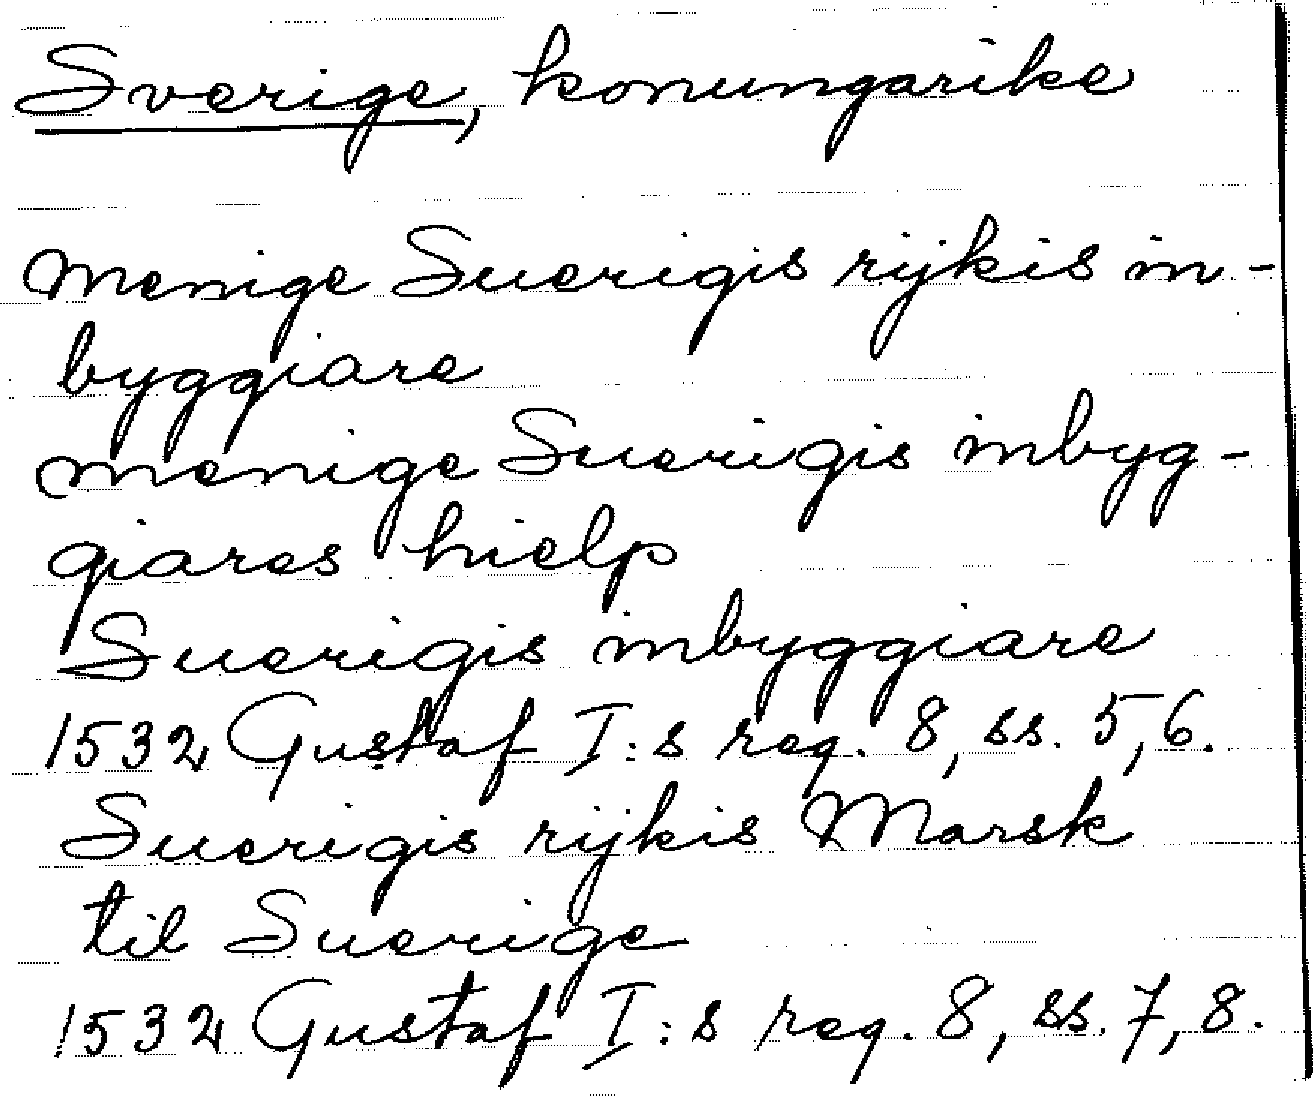 Sverige, konungarike
menige Suerigis rijkis in-
byggiare
menige Suerigis inbyg-
giares hielp
Suerigis inbyggiare
1532 Gustaf I:s reg. 8, ss. 5, 6.
Suerigis rijkis Marsk
til Suerige
1532 Gustaf I:s reg. 8, ss. 7, 8.